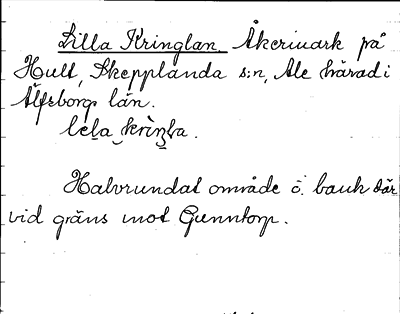 Lilla Kringlan. Åkermark på
Hult, Skepplanda s:n, Ale härad i
Älfsborgs län.
lela kriŋla.
Halvrundat område o. bank där
vid gräns mot Gunntorp.